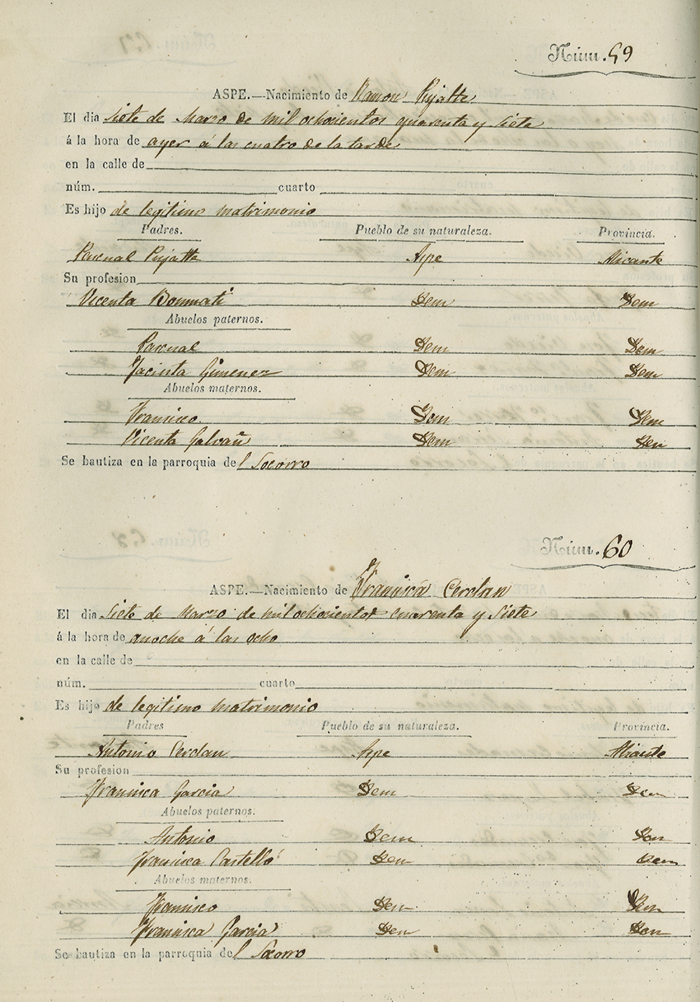 Núm. 59
ASPE.—Nacimiento de Ramon Pujalte
El dia siete de Marzo de mil ochocientos quarenta y siete
á la hora de ayer á las cuatro de la tarde
en la calle de
núm. cuarto
Es hijo de legitimo matrimonio
Padres. Pueblo de su naturaleza. Provincia.
Pascual Pujalte Aspe Alicante
Su profesion
Vicenta Bonmati Idem Idem
Abuelos paternos.
Pascual Idem Idem
Jacinta Gimenez Idem Idem
Abuelos maternos.
Francisco Idem Idem
Vicenta Galvañ Idem Idem
Se bautiza en la parroquia del Socorro
Núm. 60
ASPE.—Nacimiento de Francisca Cerdan
El dia siete de Marzo de mil ochocientos cuarenta y siete
á la hora de anoche á las ocho
en la calle de
núm. cuarto
Es hijo de legitimo matrimonio
Padres Pueblo de su naturaleza. Provincia.
Antonio Cerdan Aspe Alicante
Su profesion
Francisca Garcia Idem Idem
Abuelos paternos.
Antonio Idem Idem
Francisca Castelló Idem Idem
Abuelos maternos.
Francisco Idem Idem
Francisca Garcia Idem Idem
Se bautiza en la parroquia del Socorro